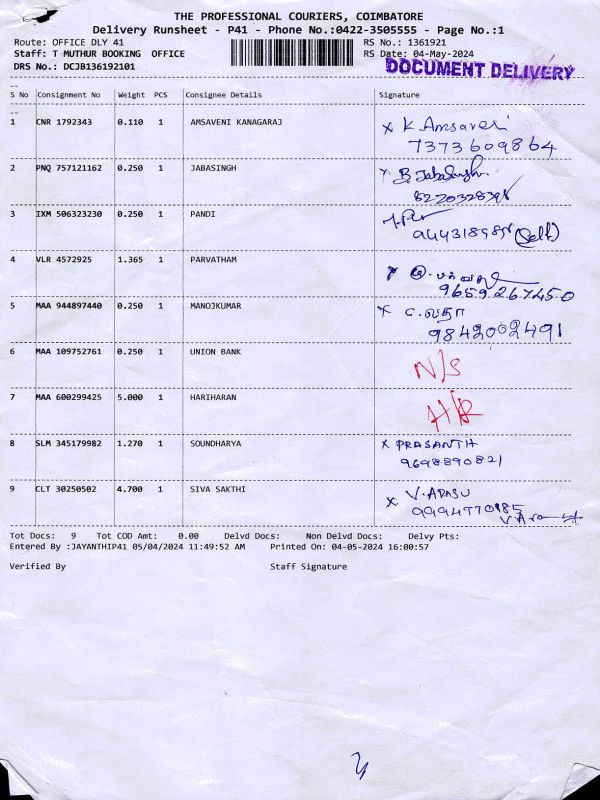 THE PROFESSIONAL COURIERS, COIMBATORE
Delivery Runsheet - P41 - Phone No.:0422-3505555 - Page No.:1
Route: OFFICE DLY 41 RS No.: 1361921
Staff: T MUTHUR BOOKING OFFICE RS Date: 04-May-2024
DRS No.: DCJB136192101 DOCUMENT DELIVERY
S No Consignment No Weight PCS Consignee Details Signature
1 CNR 1792343 0.110 1 AMSAVENI KANAGARAJ x K. Amsaveni
7373609864
2 PNQ 757121162 0.250 1 JABASINGH x B. Jabasingh.
3 IXM 506323230 0.250 1 PANDI
(Self)
4 VLR 4572925 1.365 1 PARVATHAM
9659267450
5 MAA 944897440 0.250 1 MANOJKUMAR x C. லதா
9842002491
6 MAA 109752761 0.250 1 UNION BANK N/S
7 MAA 600299425 5.000 1 HARIHARAN
8 SLM 345179982 1.270 1 SOUNDHARYA x PRASANTH
9698890821
9 CLT 30250502 4.700 1 SIVA SAKTHI x V. ARASU
9994770985
Tot Docs: 9 Tot COD Amt: 0.00 Delvd Docs: Non Delvd Docs: Delvy Pts:
Entered By :JAYANTHIP41 05/04/2024 11:49:52 AM Printed On: 04-05-2024 16:00:57
Verified By Staff Signature